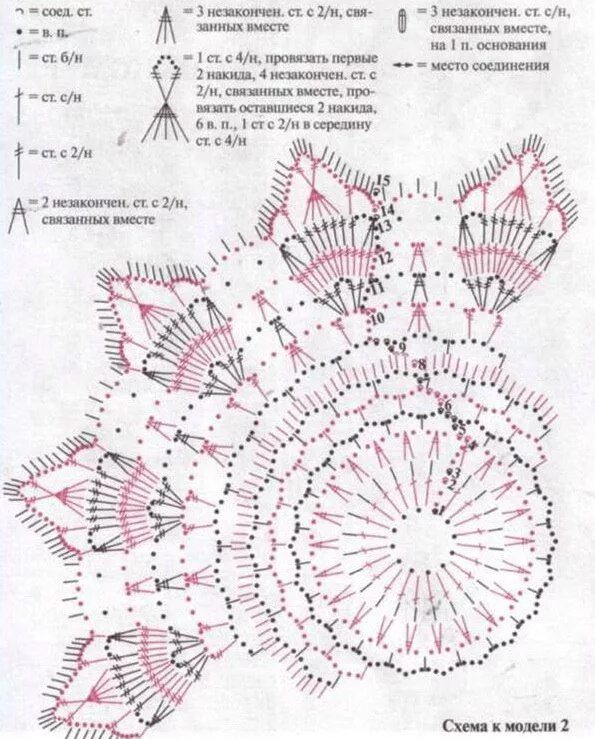 = соед. ст.
= в. п.
= ст. б/н
= ст. с/н
= ст. с 2/н
= 2 незакончен. ст. с 2/н,
связанных вместе
= 3 незакончен. ст. с 2/н, свя-
занных вместе
= 1 ст. с 4/н, провязать первые
2 накида, 4 незакончен. ст. с
2/н, связанных вместе, про-
вязать оставшиеся 2 накида,
6 в. п., 1 ст с 2/н в середину
ст. с 4/н
= 3 незакончен. ст. с/н,
связанных вместе,
на 1 п. основания
= место соединения
15
14
13
12
11
10
9
8
7
6
5
4
3
2
1
Схема к модели 2